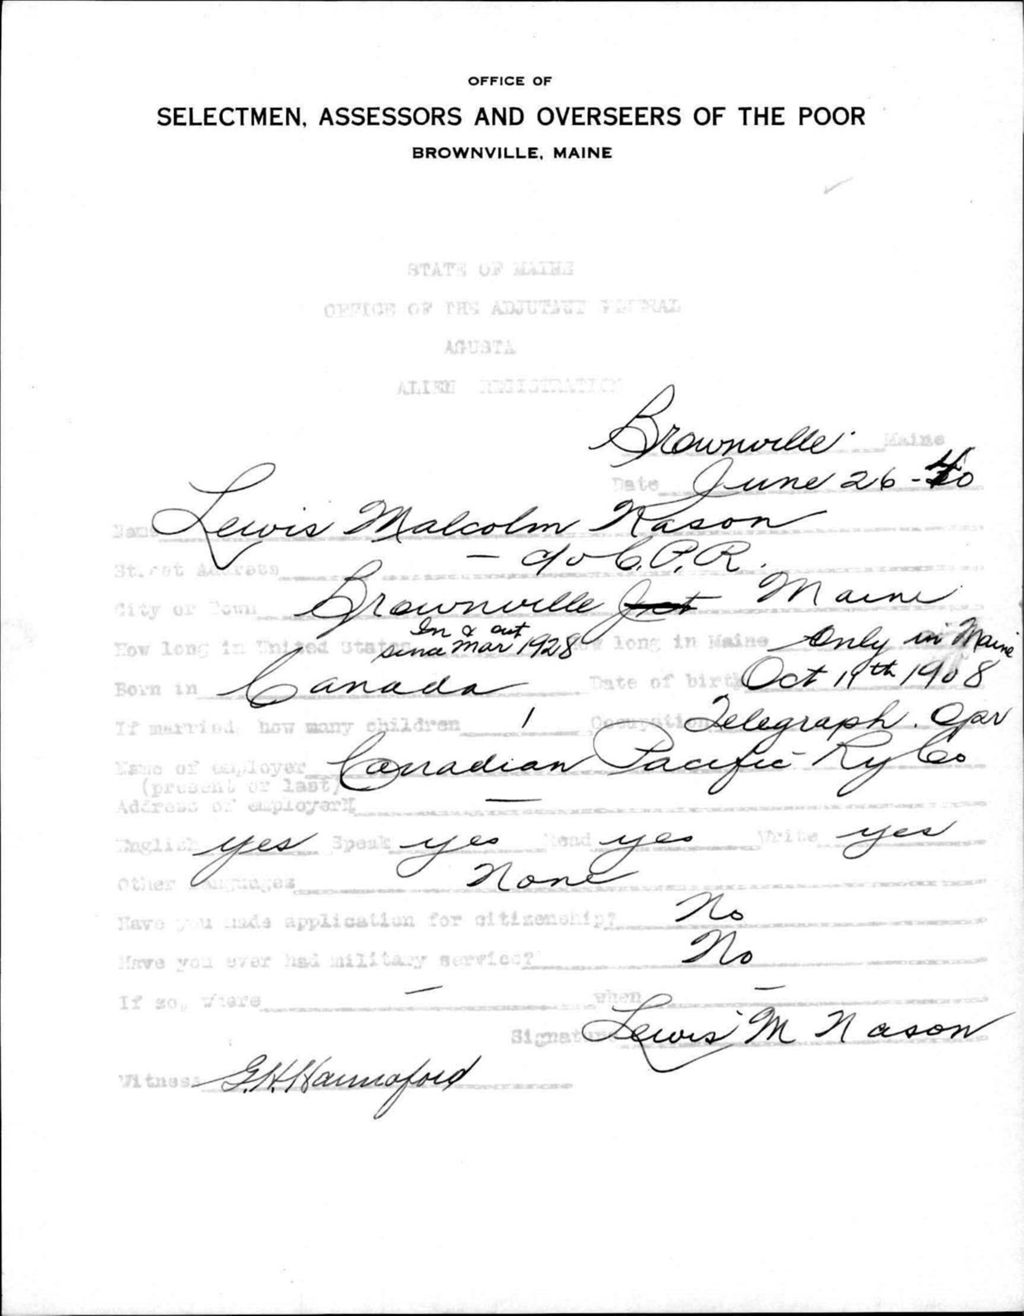 OFFICE OF
SELECTMEN, ASSESSORS AND OVERSEERS OF THE POOR
BROWNVILLE, MAINE
STATE OF MAINE
OFFICE OF THE ADJUTANT GENERAL
AGUSTA
ALIEN REGISTRATION
Brownville Maine
Date June 26-40
Name Lewis Malcolm Nason
Street Address — c/o C.P.R.
City or Town Brownville Jct Maine
How long in United States In & out since Mar 1928 How long in Maine Only in Maine
Born in Canada Date of birth Oct 19th 1908
If married, how many children 1 Occupation Telegraph. Opr
Name of employer Canadian Pacific Ry Co
(present or last)
Address of employer —
English yes Speak yes Read yes Write yes
Other languages None
Have you made application for citizenship? No
Have you ever had military service? No
If so, where — when —
Signature Lewis M Nason
Witness G.H. Hannaford